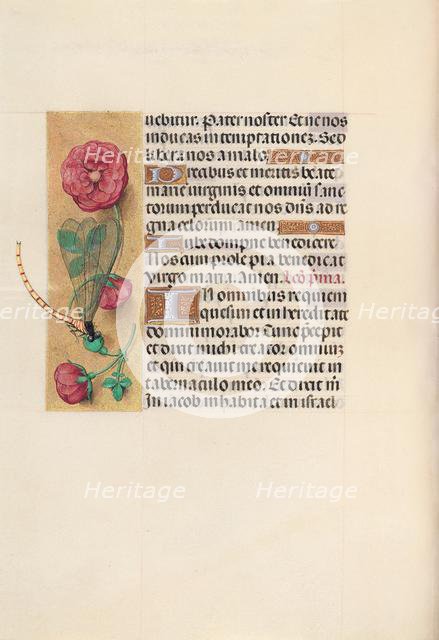 uebitur. Pater noster Et ne nos
inducas in temptationez. Sed
libera nos a malo.
Precibus et meritis beate
marie virginis et omniū sanc
torum perducat nos dñs ad re
gna celorum. Amen.
Iube domne benedicere
Nos cum prole pia benedicat
virgo maria. Amen. Leō prima.
In omnibus requiem
quesivi et in heredita te
domini morabor Tunc precepit
et dixit michi creator omniuz
et qui creavit me requievit in
tabernaculo meo. Et dixit m̄
In iacob inhabita et in israel
Heritage
Heritage
Heritage
Heritage
Heritage
Heritage